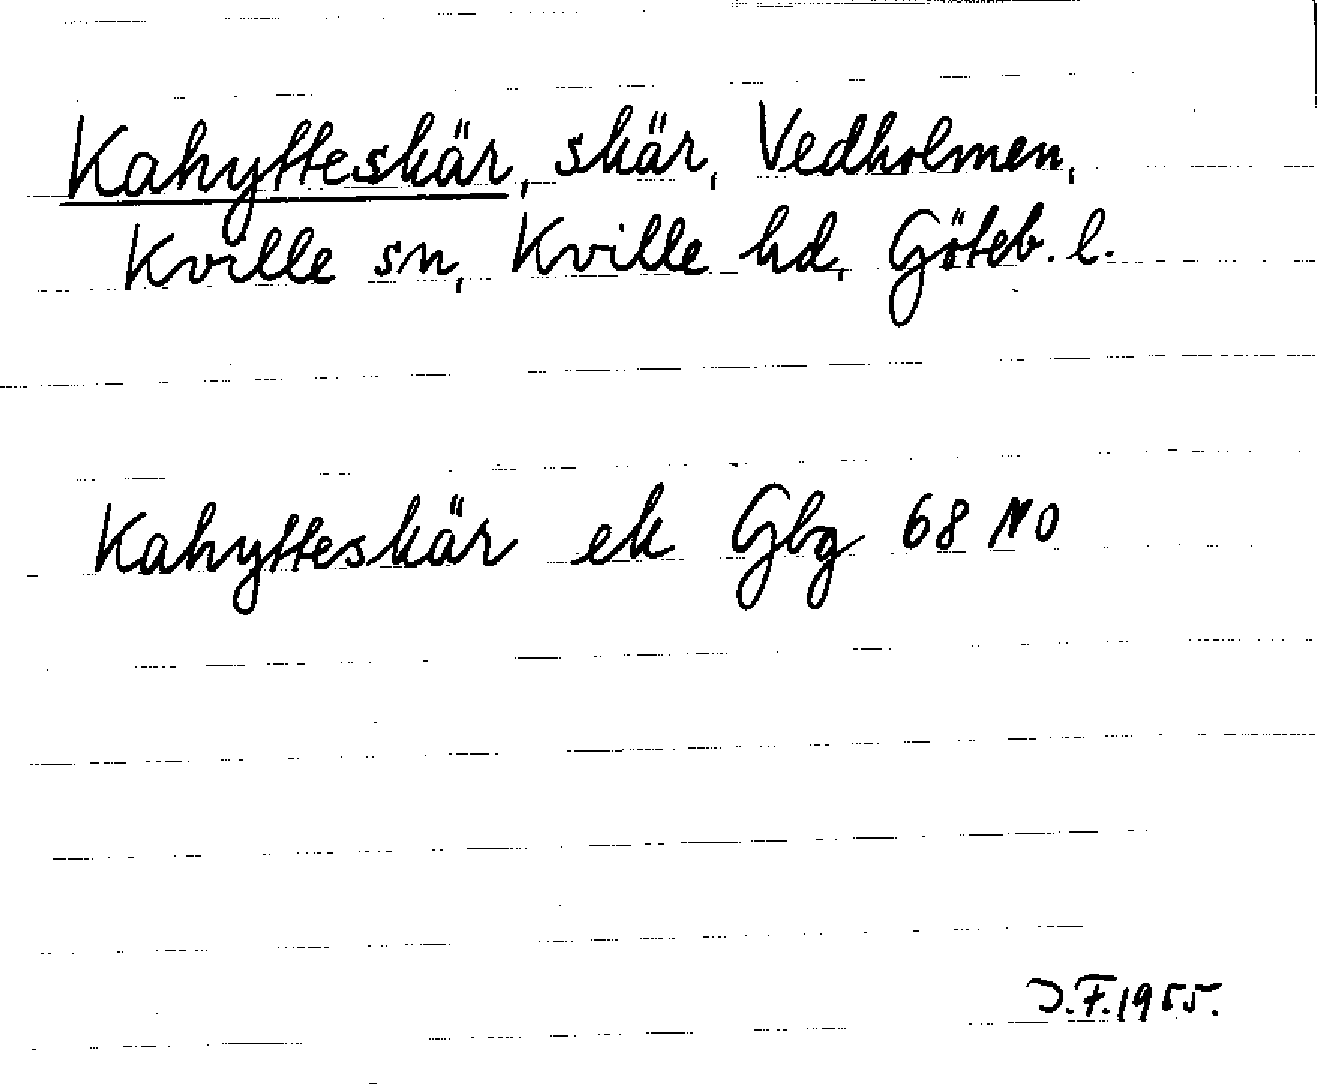 Kahytteskär, skär, Vedholmen,
Kville sn, Kville hd, Göteb. l.
Kahytteskär ek Gbg 68 NO
D.F. 1955.